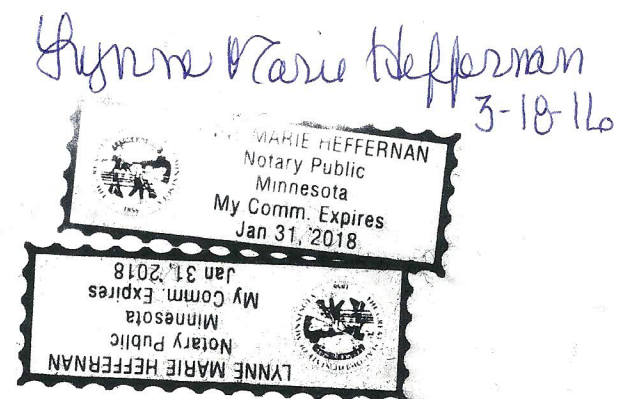 Lynne Marie Heffernan
3-18-16
MARIE HEFFERNAN
Notary Public
Minnesota
My Comm. Expires
Jan 31, 2018
1858
LYNNE MARIE HEFFERNAN
Notary Public
Minnesota
My Comm. Expires
Jan 31, 2018